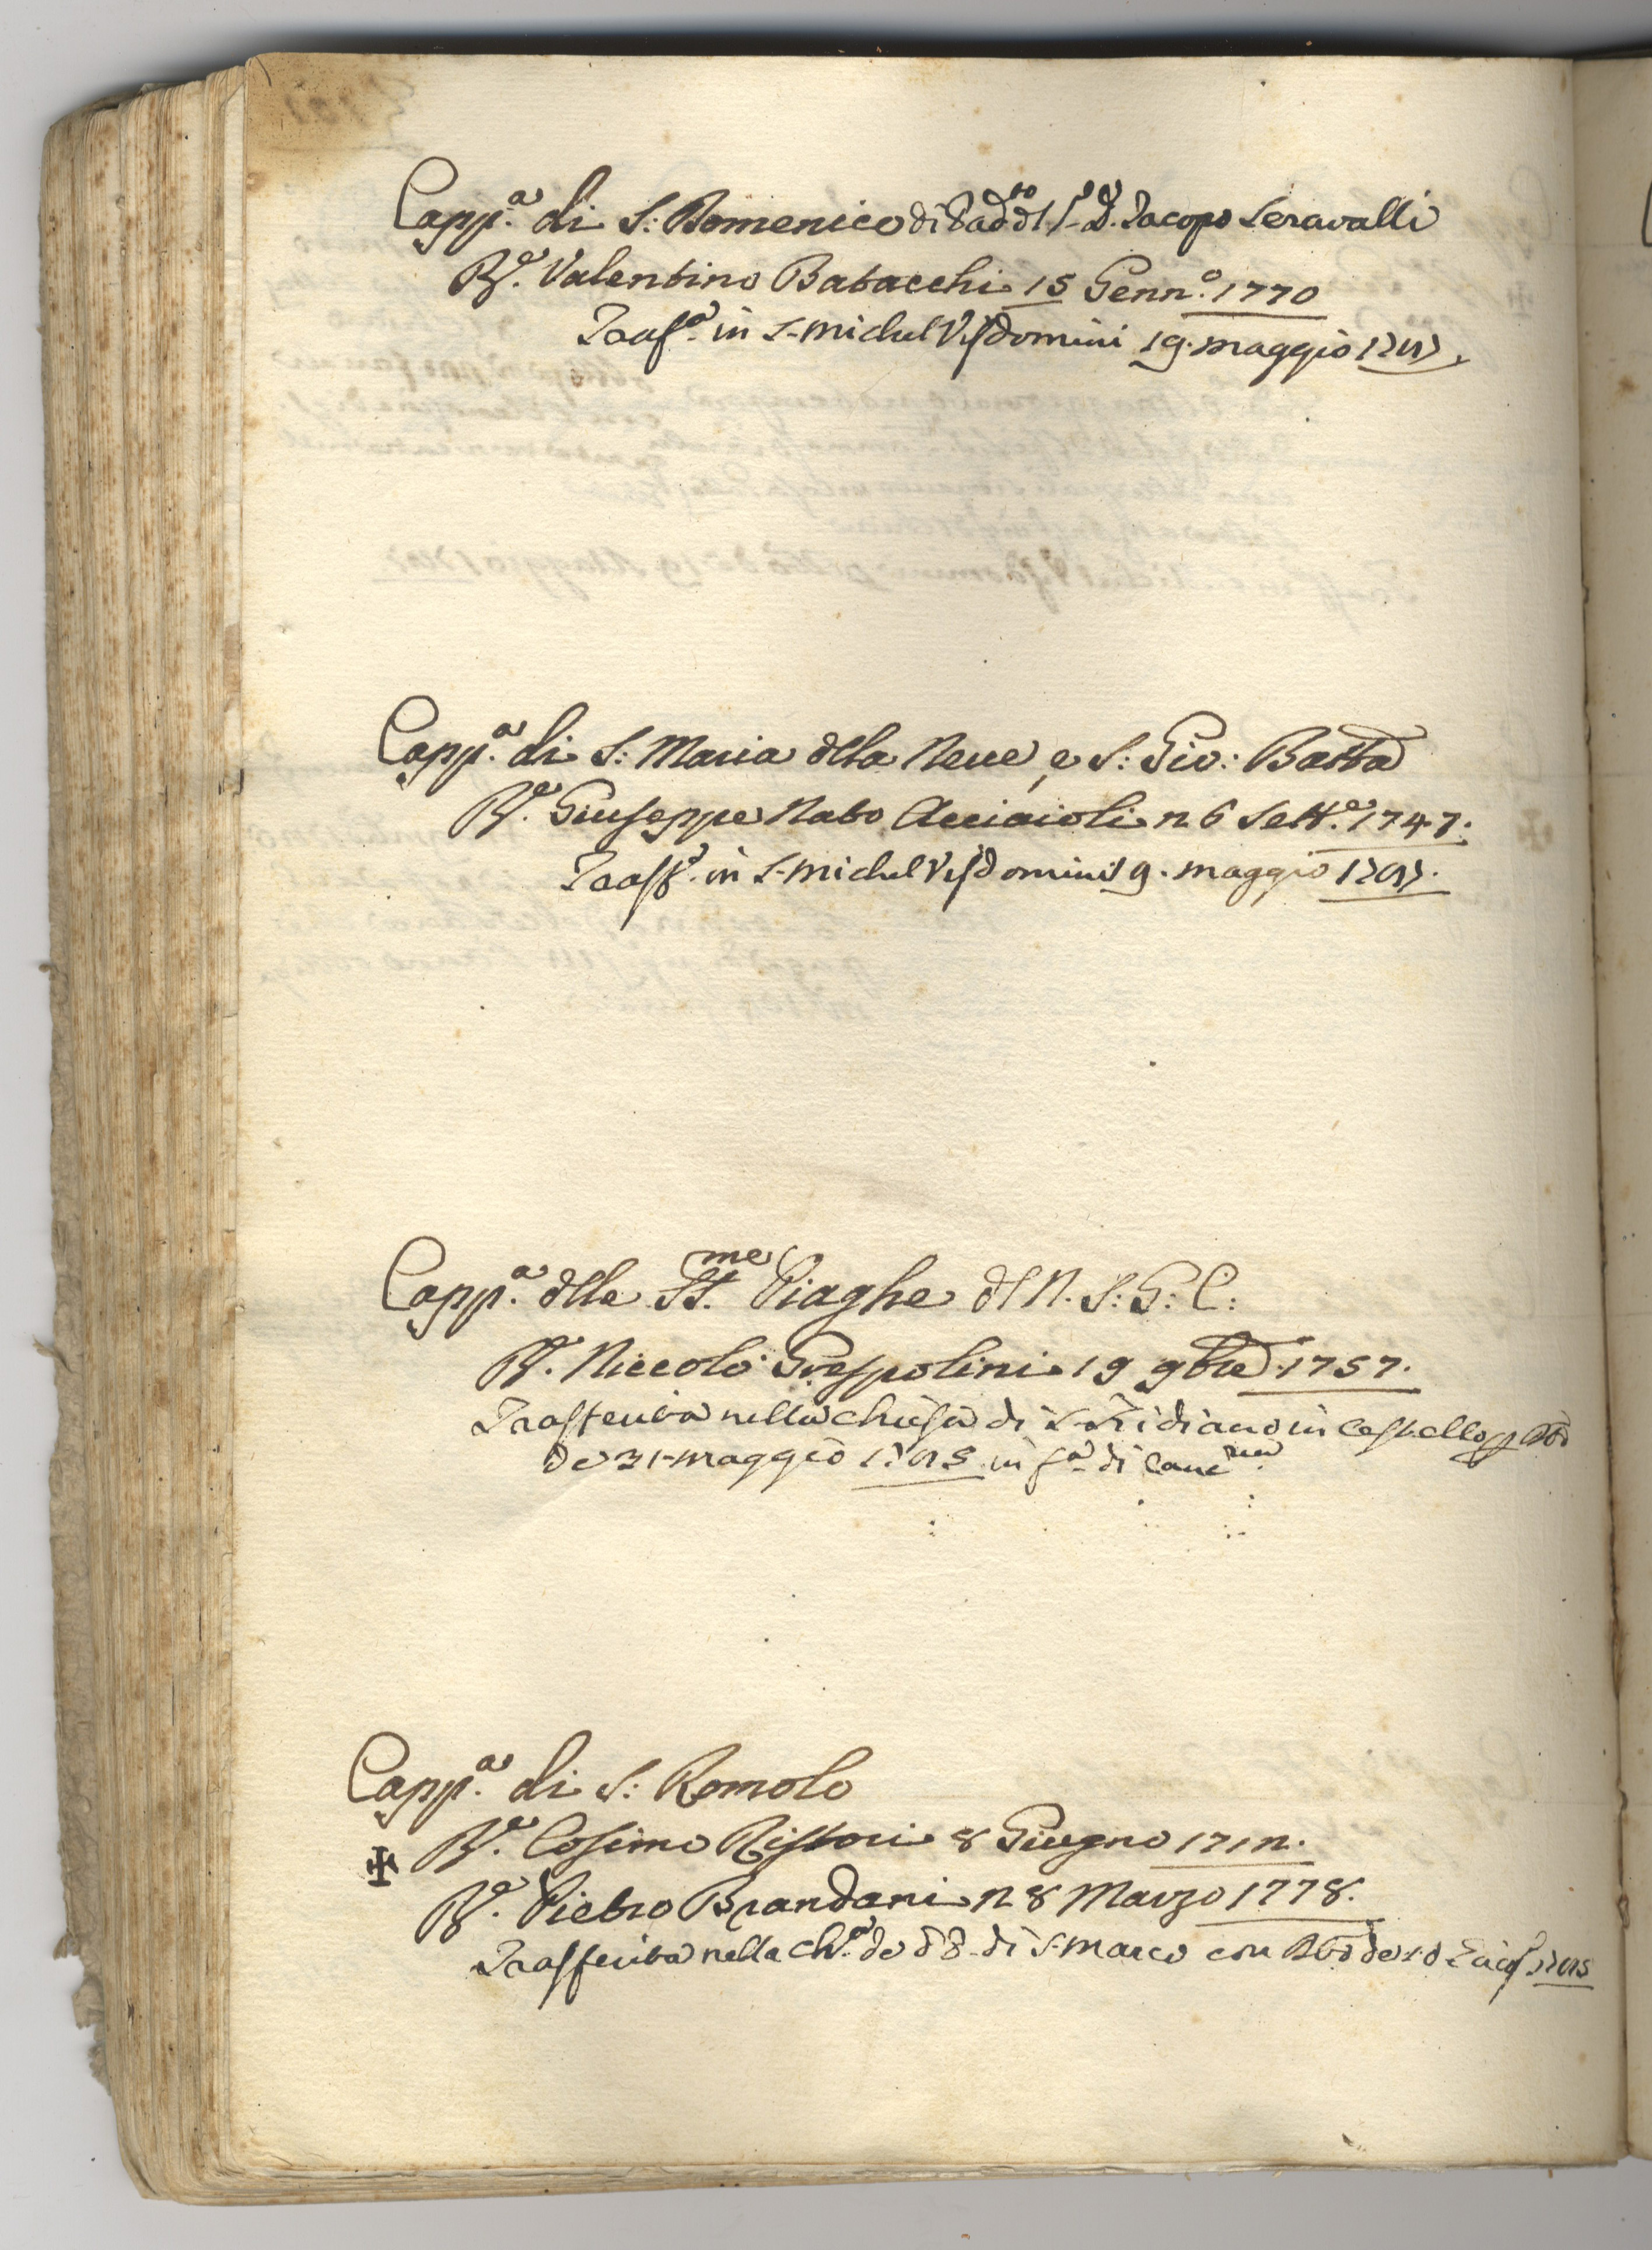 Capp.a di S: Domenico di Pad.to dl S.r D. Jacopo Seravalli
R.e Valentino Batacchi 15 Genn.o 1770
Trasf.a in S. Michel Visdomini 19. maggio 1787.
Capp.a di S: Maria dlla Neve, e S: Gio: Batta
R.e Giuseppe Nato Acciaioli 26 Sett.e 1747.
Trasf.a in S. Michel Visdomini 19. maggio 1787.
Capp.a dlle SS.me Piaghe dl N. S: G: C:
R.e Niccolò Grespolini 19 9bre 1757.
Trasferita nella Chiesa di S. Fridiano in Cestello p
de 31 maggio 1785. in f.a di Canc
Capp.a di S: Romolo
✠ R.e Cosimo Ristori 8 Giugno 1712.
R.e Pietro Brandani 28 Marzo 1778.
Trasferita nella Ch.a de di S. Marco con de 1785